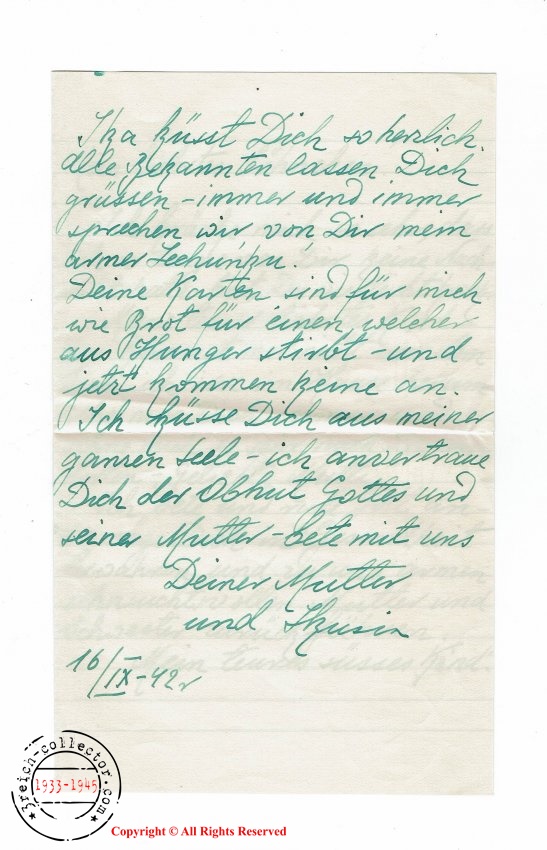 Ika küsst Dich so herzlich.
Alle Bekannten lassen Dich
grüssen – immer und immer
sprechen wir von Dir mein
armer
Deine Karten sind für mich
wie Brot für einen, welcher
aus Hunger stirbt – und
jetzt kommen keine an.
Ich küsse Dich aus meiner
ganzen Seele – ich anvertraue
Dich der Obhut Gottes und
seiner Mutter – bete mit uns
Deiner Mutter
und
16/IX–42r
3reich-collector.com
1933-1945
Copyright © All Rights Reserved